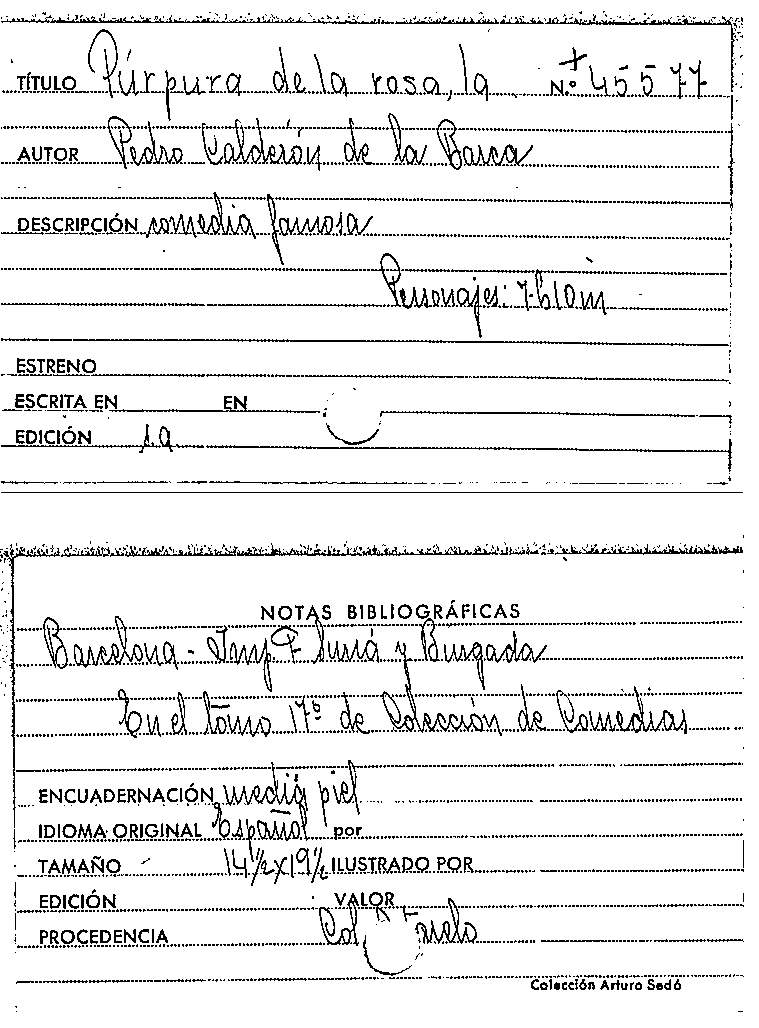 TÍTULO Púrpura de la rosa, la Nº + 45577
AUTOR Pedro Calderón de la Barca
DESCRIPCIÓN comedia famosa
Personajes: 7-h 10 m
ESTRENO
ESCRITA EN EN
EDICIÓN 1ª
NOTAS BIBLIOGRÁFICAS
Barcelona - Impª Suriá y Burgada
En el tomo 17º de Colección de Comedias
ENCUADERNACIÓN media piel
IDIOMA ORIGINAL Español por
TAMAÑO 14½x19½ ILUSTRADO POR
EDICIÓN VALOR
PROCEDENCIA Col
Colección Arturo Sedó